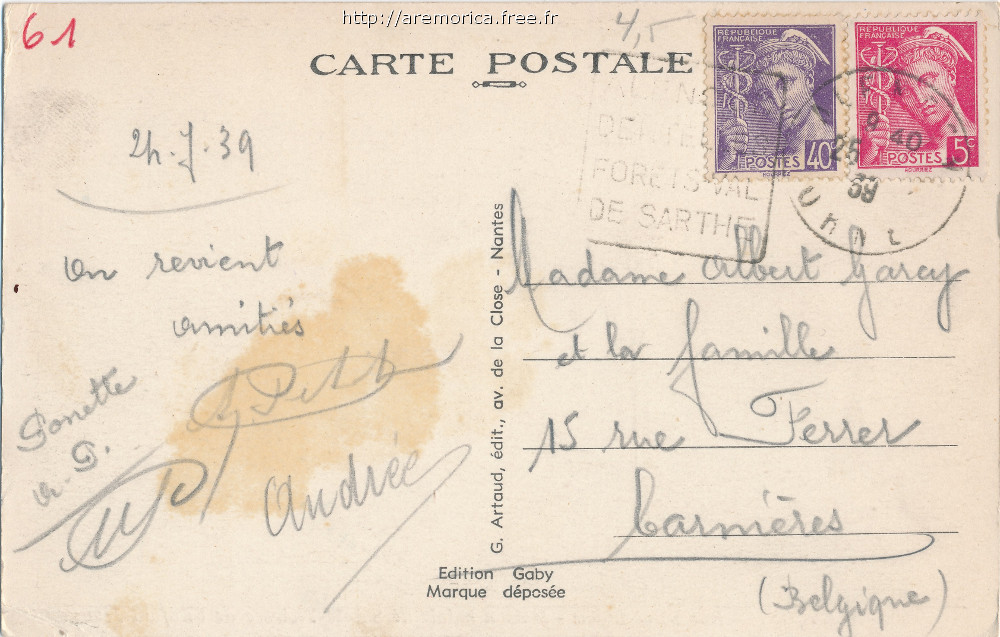 http://aremorica.free.fr
61
4,5
CARTE POSTALE
RÉPUBLIQUE
FRANÇAISE
POSTES 40c
HOURRIEZ
RÉPUBLIQUE
FRANÇAISE
POSTES 5c
HOURRIEZ
DENTE
FORETS VAL
DE SARTHE
9 40
25
39
24.7.39
on revient
amitiés
Andrée
G. Artaud, édit., av. de la Close - Nantes
Madame Albert Garcy
et la famille
15 rue Ferrer
Carnières
(Belgique)
Edition Gaby
Marque déposée